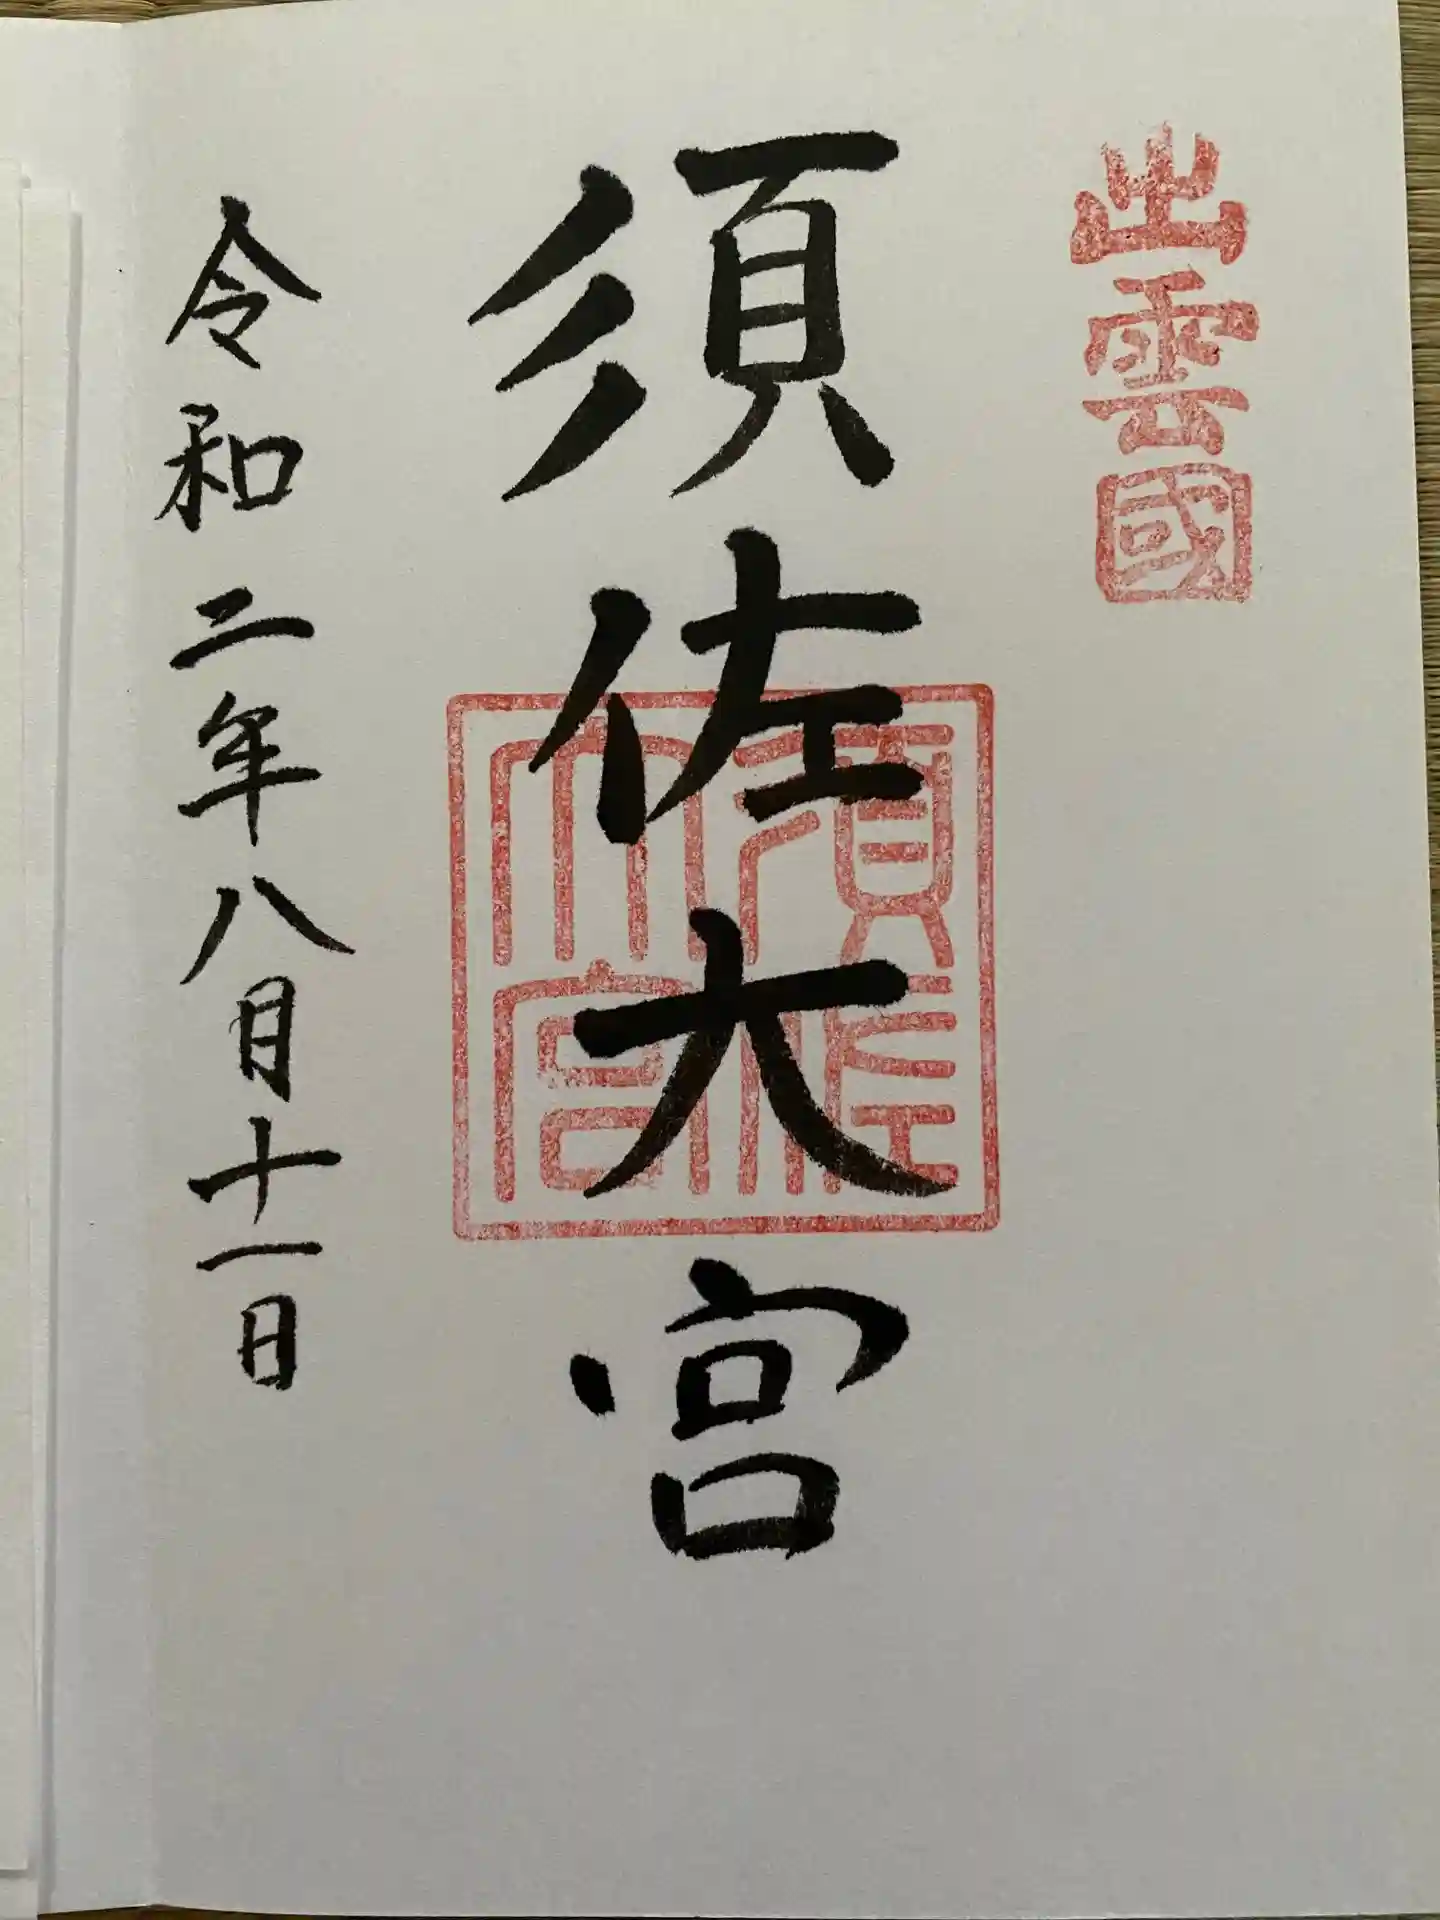 出雲國
須佐大宮
須佐
大宮
令和二年八月十一日